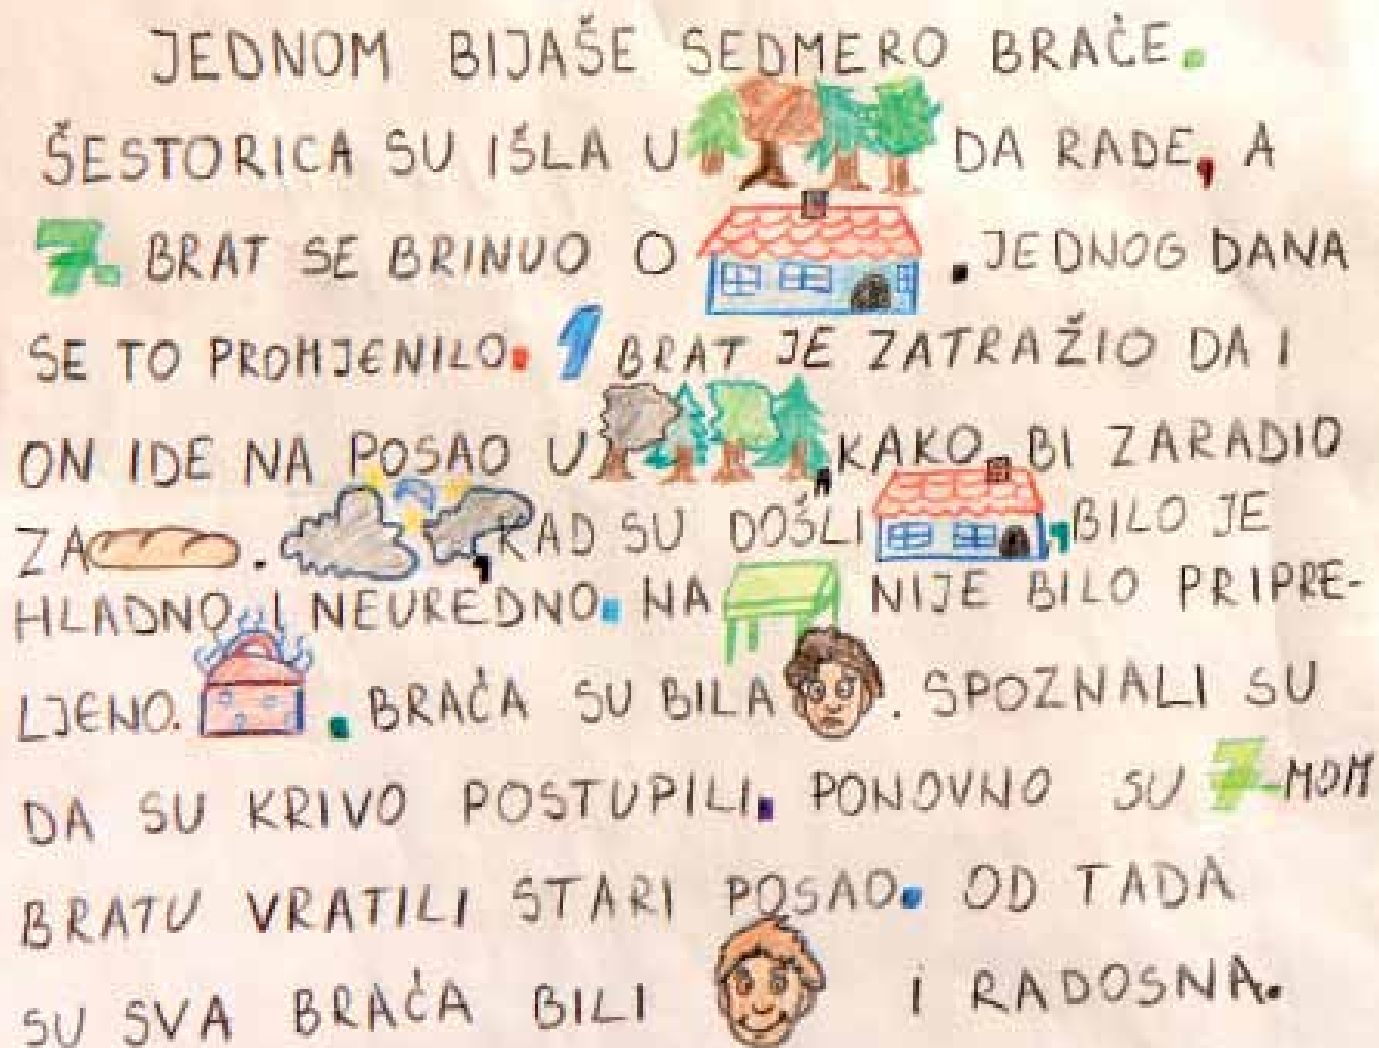 JEDNOM BIJAŠE SEDMERO BRAĆE.
ŠESTORICA SU IŠLA U DA RADE, A
7. BRAT SE BRINUO O . JEDNOG DANA
SE TO PROMJENILO. 1 BRAT JE ZATRAŽIO DA I
ON IDE NA POSAO U , KAKO BI ZARADIO
ZA . , KAD SU DOŠLI , BILO JE
HLADNO I NEUREDNO. NA NIJE BILO PRIPRE-
LJENO. . BRAĆA SU BILA . SPOZNALI SU
DA SU KRIVO POSTUPILI. PONOVNO SU 7-MOM
BRATU VRATILI STARI POSAO. OD TADA
SU SVA BRAĆA BILI I RADOSNA.